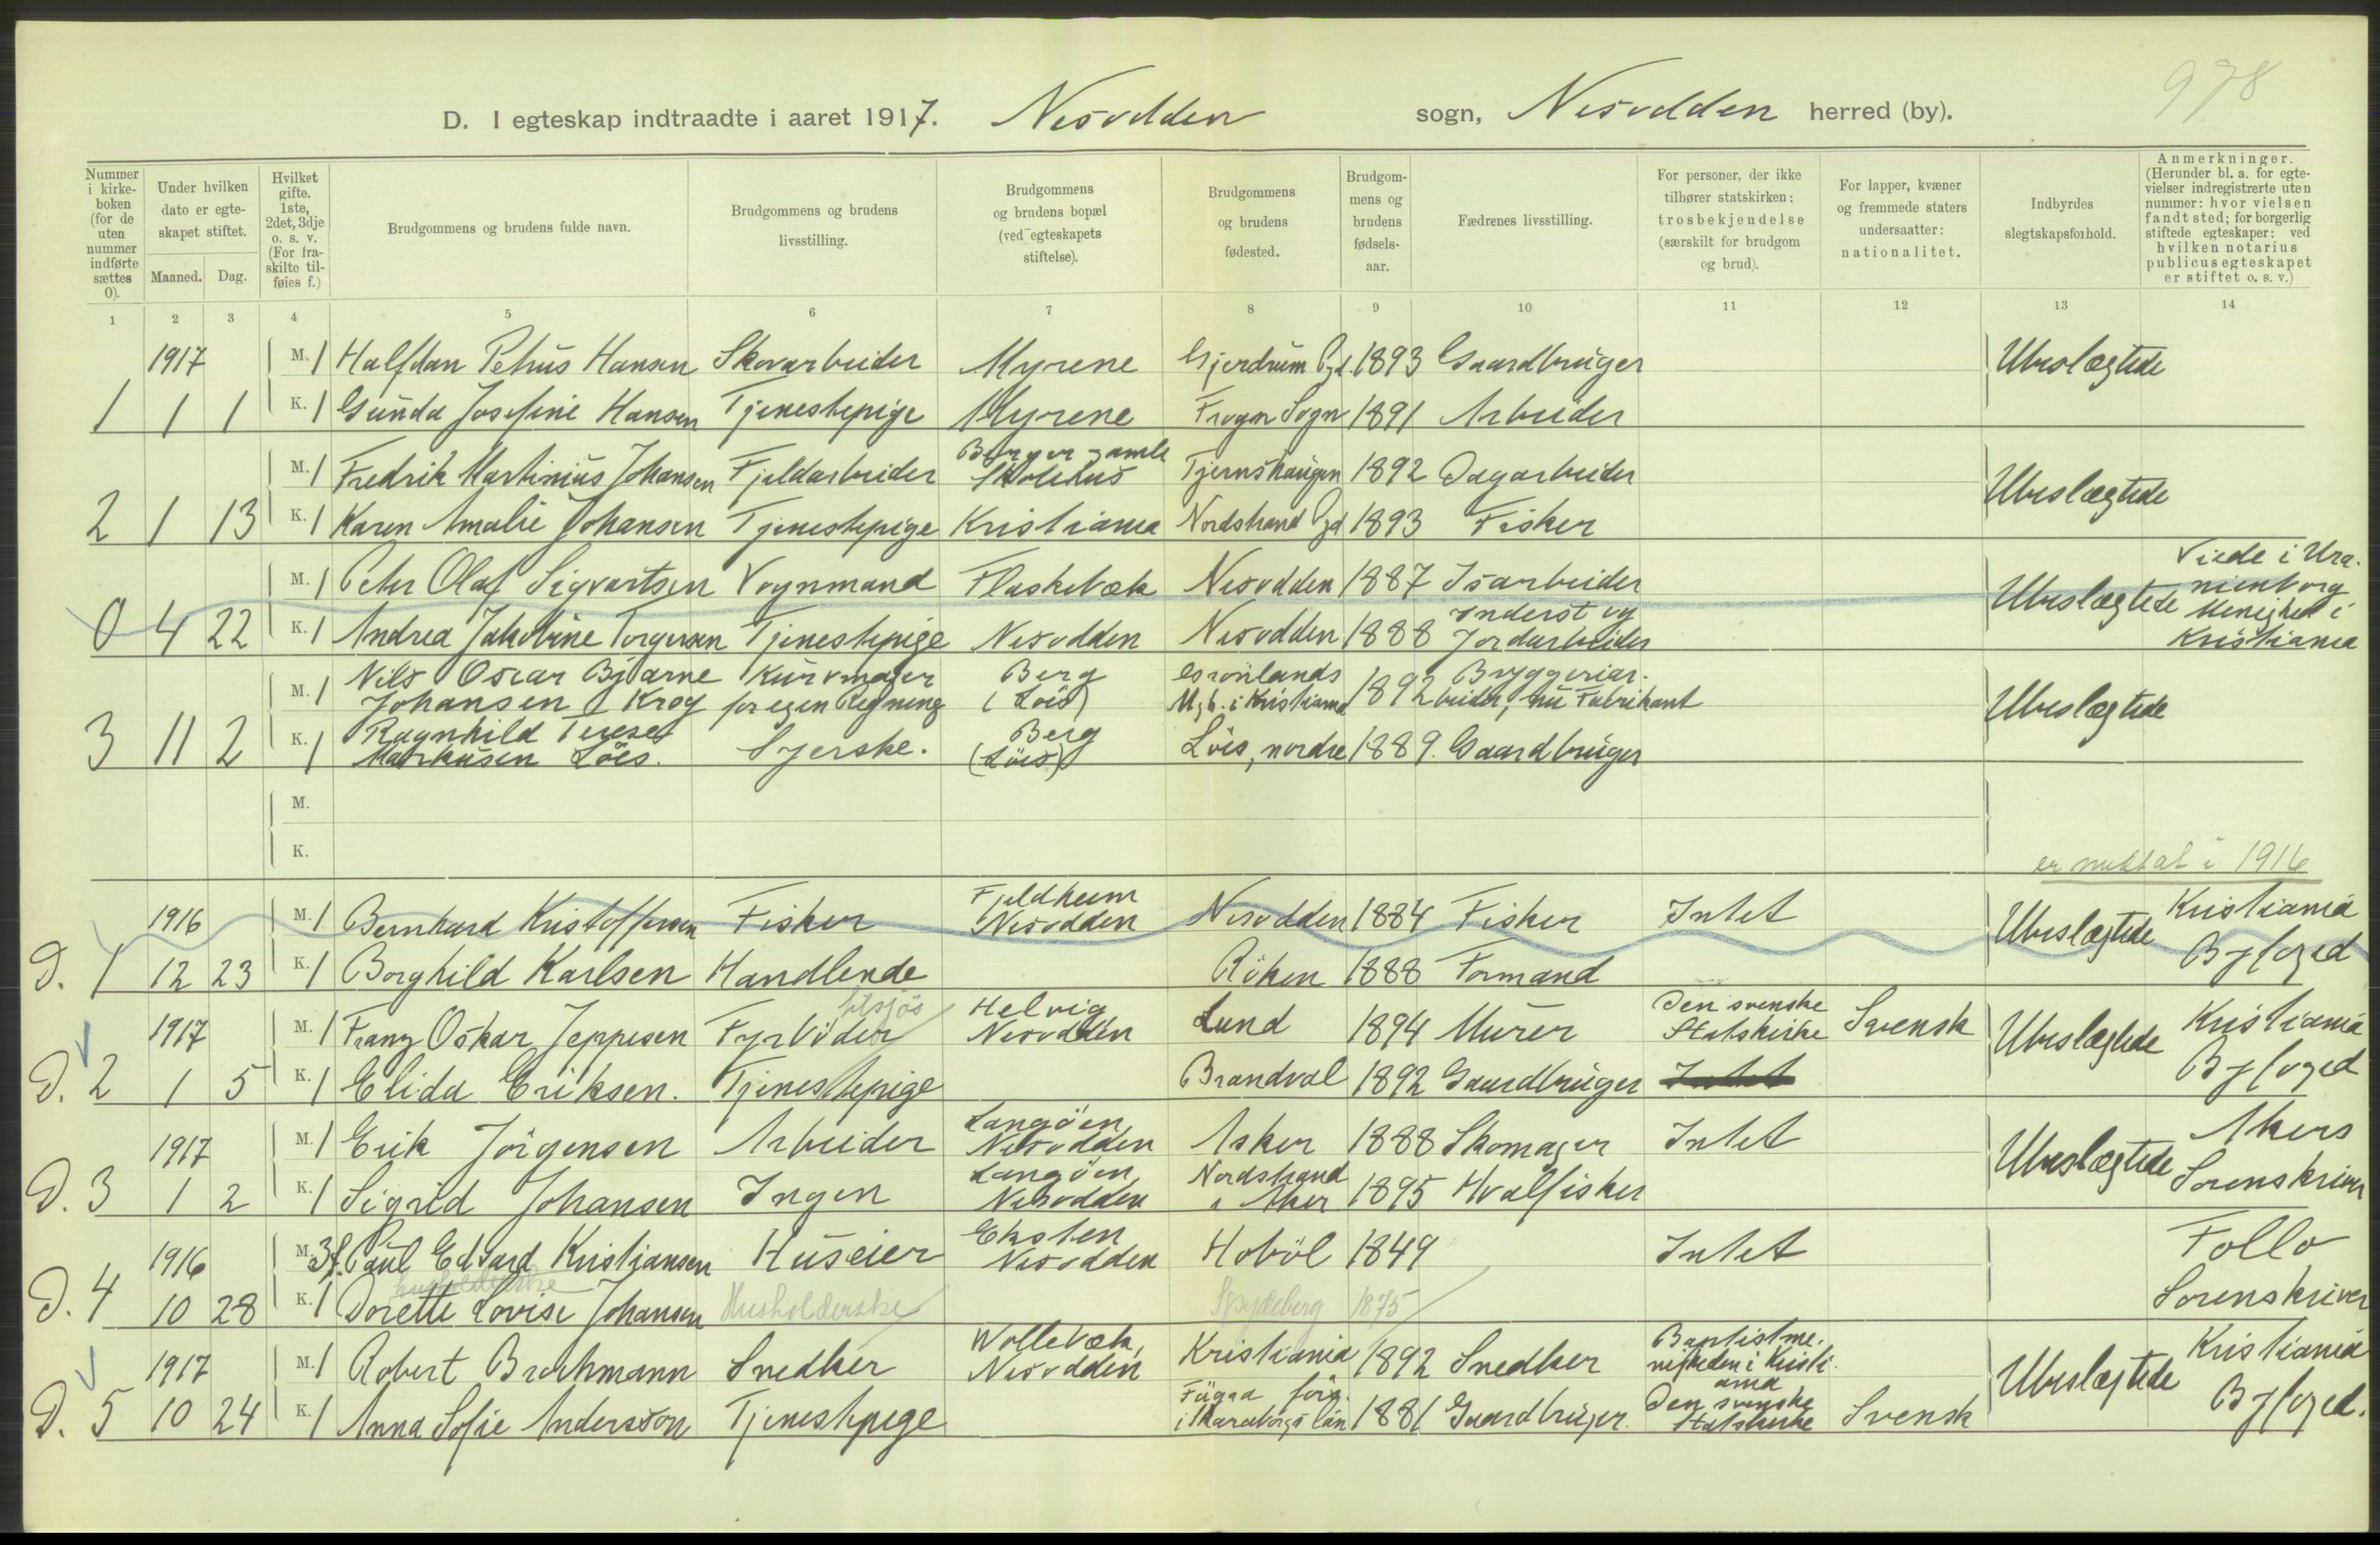 978
D. I egteskap indtraadte i aaret 1917. Nesodden sogn, Nesodden herred (by).
Nummer i kirkeboken (for de uten nummer indførte sættes 0).
Under hvilken dato er egteskapet stiftet.
Maaned. Dag.
Hvilket gifte. 1ste, 2det, 3dje o. s. v. (For fraskilte tilføies f.)
Brudgommens og brudens fulde navn.
Brudgommens og brudens livsstilling.
Brudgommens og brudens bopæl (ved egteskapets stiftelse).
Brudgommens og brudens fødested.
Brudgommens og brudens fødselsaar.
Fædrenes livsstilling.
For personer, der ikke tilhører statskirken: trosbekjendelse (særskilt for brudgom og brud).
For lapper, kvæner og fremmede staters undersaatter: nationalitet.
Indbyrdes slegtskapsforhold.
Anmerkninger. (Herunder bl. a. for egtevielser indregistrerte uten nummer: hvor vielsen fandt sted; for borgerlig stiftede egteskaper: ved hvilken notarius publicus egteskapet er stiftet o. s. v.)
1 2 3 4 5 6 7 8 9 10 11 12 13 14
1917 M. 1 Halfdan Petrus Hansen Skovarbeider Myrene Gjerdrum Pgd. 1893 Gaardbruger Ubeslægtede
1 1 1 K. 1 Gunda Josefine Hansen Tjenestepige Myrene Frogn Sogn 1891 Arbeider
M. 1 Fredrik Martinius Johansen Fjeldarbeider Berger gamle Skolehus Tjernshaugen 1892 Dagarbeider Ubeslægtede
2 1 13 K. 1 Karen Amalie Johansen Tjenestepige Kristiania Nordstrand Pgd 1893 Fisker
M. 1 Peter Olaf Sigvartsen Vognmand Flaskebæk Nesodden 1887 Isarbeider Ubeslægtede Viede i Uranienborg Menighed i Kristiania
0 4 22 K. 1 Andrea Jakobine Torgersen Tjenestepige Nesodden Nesodden 1888 Inderst og Jordarbeider
M. 1 Nils Oscar Bjarne Johansen Krog Kurvmager for egen Regning Berg (Löis) Grønlands Mgh. i Kristiania 1892 Bryggeriarbeider, nu Fabrikant Ubeslægtede
3 11 2 K. 1 Ragnhild Terese Markusen Löis. Syerske. Berg (Löis) Löis, nordre 1889. Gaardbruger
M.
K.
er medtat i 1916
1916 M. 1 Bernhard Kristoffersen Fisker Fjeldheim Nesodden Nesodden 1884 Fisker Intet Ubeslægtede Kristiania Byfoged
D. 1 12 23 K. 1 Borghild Karlsen Handlende Röken 1888 Formand
1917 M. 1 Franz Oskar Jeppesen Fyrböder tilsjös Helvig Nesodden Lund 1894 Murer Den svenske Statskirke Svensk Ubeslægtede Kristiania Byfoged
D. 2 1 5 K. 1 Elida Eriksen. Tjenestepige Brandval 1892 Gaardbruger Intet
1917 M. 1 Erik Jörgensen Arbeider Langöen Nesodden Asker 1888 Skomager Intet Ubeslægtede Akers Sorenskriver
D. 3 1 2 K. 1 Sigrid Johansen Ingen Langöen Nesodden Nordstrand i Aker 1895 Hvalfisker
1916 M. 3f. Paul Edvard Kristiansen Huseier Eksten Nesodden Hoböl 1849 Intet Follo Sorenskriver
husholderske
D. 4 10 28 K. 1 Dorette Lovise Johansen Husholderske Spydeberg 1875
1917 M. 1 Robert Brochmann Snedker Wollebæk, Nesodden Kristiania 1892 Snedker Baptistmenigheden i Kristiania Ubeslægtede Kristiania Byfoged.
D. 5 10 24 K. 1 Anna Sofie Andersson Tjenestepige i Skaraborgs län 1881 Gaardbruger. Den svenske Statskirke Svensk